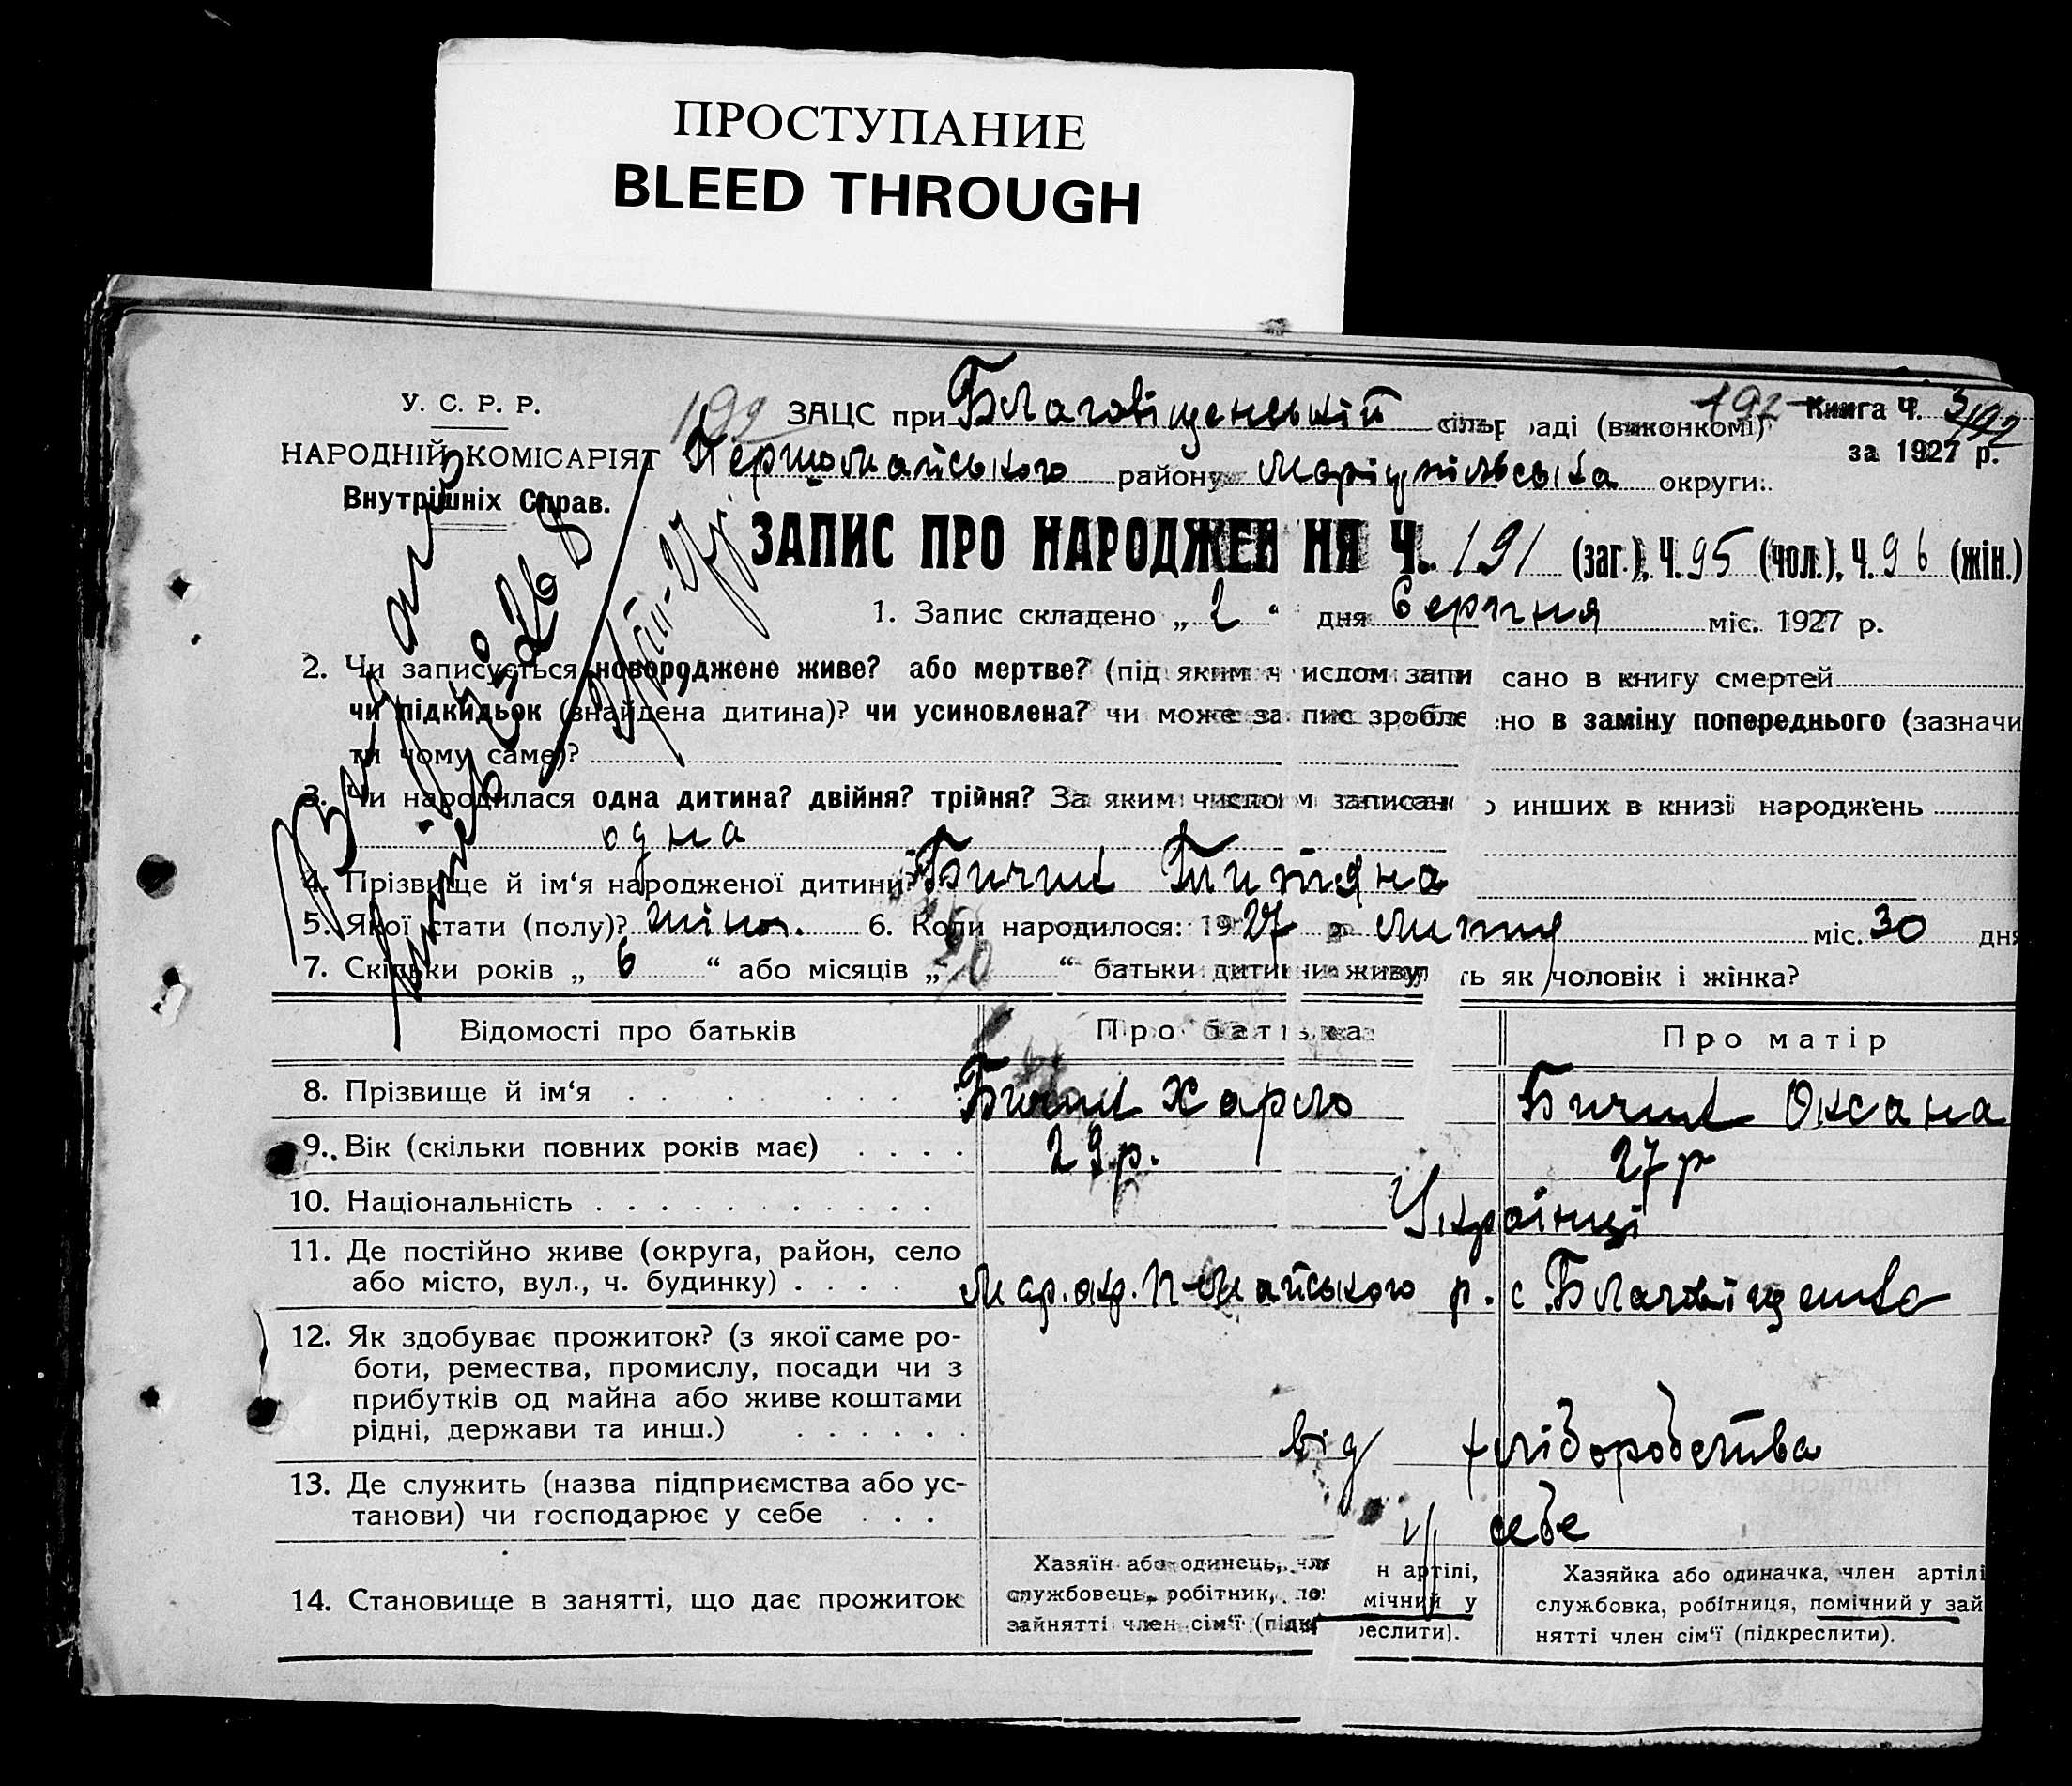 ПРОСТУПАНИЕ
BLEED THROUGH
У. С. Р. Р.
НАРОДНІЙ КОМІСАРІЯТ
Внутрішніх Справ.
192 ЗАЦС при Благовіщенській сільраді (виконкомі) 192 Книга Ч. 3/192
Першомайського району Маріупільська округи. за 1927 р.
ЗАПИС ПРО НАРОДЖЕННЯ Ч. 191 (заг.), Ч. 95 (чол.), Ч. 96 (жін.)
1. Запис складено „ 2 “ дня Серпня міс. 1927 р.
2. Чи записується новороджене живе? або мертве? (під яким числом записано в книгу смертей
чи підкидьок (знайдена дитина)? чи усиновлена? чи може запис зроблено в заміну попереднього (зазначи
ти чому саме)?
3. Чи народилася одна дитина? двійня? трійня? За яким числом записано инших в книзі народжень
одна
4. Прізвище й ім‘я народженої дитини? Бичик Титяна
5. Якої стати (полу)? жіно. 6. Коли народилося: 1927 р Липня міс. 30 дня
7. Скільки років „ 6 “ або місяців „ “ батьки дитини живуть як чоловік і жінка?
Відомості про батьків Про батька Про матір
8. Прізвище й ім‘я Бичик Харло Бичик Оксана
9. Вік (скільки повних років має) 29р. 27р
10. Національність Українці
11. Де постійно живе (округа, район, село
або місто, вул., ч. будинку) Мар. окр. П-Майського р. с Благовіщенка
12. Як здобуває прожиток? (з якої саме ро-
боти, ремества, промислу, посади чи з
прибутків од майна або живе коштами
рідні, держави та инш.) від хліборобства
13. Де служить (назва підприємства або ус-
танови) чи господарює у себе у себе
14. Становище в занятті, що дає прожиток
Хазяїн або одинець, член артілі,
службовець, робітник, помічний у
зайнятті член сім‘ї (підкреслити).
Хазяйка або одиначка, член артілі
службовка, робітниця, помічний у зай
нятті член сім‘ї (підкреслити).